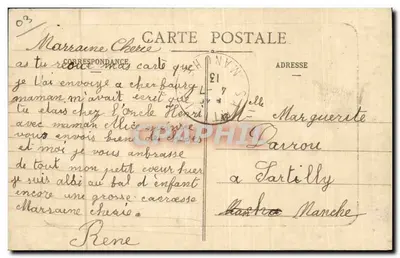 03
CARTE POSTALE
CORRESPONDANCE
ADRESSE
Marraine Cherie
as tu recue mas carte que
je t'ai envoyé a cherbourg
maman m'avait ecrit que
tu etais chez l'Oncle Henri
avec maman
vous envois bien
et moi je vous anbrasse
de tout mon petit coeur hier
je suis allé au bal d'enfant
encore une grosse cacresse
Marsaine cherie.
Rene
MANCHE
13
4 - 7
Melle Marguerite
Darrou
a Sartilly
Manche Manche
CPAPHIL